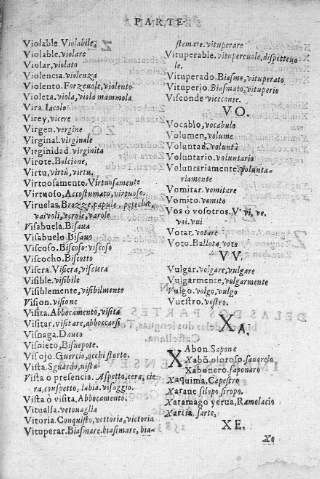 PARTE
Violable. Violabile.
Violable. violare
Violar, violato
Violencia. violenza
Violento. Forzevole, violento
Violeta. viola, viola mammola
Vira. laccolo
Virey, vicere
Virgen. vergine
Virginal. virginale
Virginidad. virginita
Virote. Bolcione,
Virtu, virtù, virtu,
Virtuosamente. Virtuosamente
Virtuoso, Accostumato, virtuoso.
Viruelas.
vaivoli, verole, varole
Visabuela. Bisava
Visabuelo. Bisavo
Viscoso. Bisvoso, viscoso
Viscocho. Biscotto
Viscera. Viscera, viscera
Visible. visibile
Visiblemente, visibilmente
Vision. visione
Visita. Abboccamento, visita
Visitar, visitare, abboccarsi
Visnaga. Dauco
Visnieto, Bisnepote.
Visojo. Guercio, occhi storto.
Vista. Sguardo, vista
Vista o presencia. Aspetto, cera, cie
ra, conspetto, labia, visaggio.
Vista ò visita. Abboccamento.
Vitualla. vetovaglia
Vitoria. Conquisto, vettoria, victoria
Vituperar. Biasmare. biasimare, bia-
stemare. vituperare
Vituperable. vituperevole, dispetteuo
le.
Vituperado. Biasmo, vituperato
Vituperio. Biasmato, vituperio
Visconde viceconte.
VO.
Vocablo, vocabulo
Volumen, volume
Voluntad. voluntà
Voluntario. voluntario
Voluntariamente. volunta-
riamente
Vomitar. vomitare
Vomito. vomito
Vos ò vosotros. Vi, ve,
voi, vui
Votar. votare
Voto. voto
VV.
Vulgar. volgare, vulgare
Vulgarmente, vulgarmente
Vulgo. volgo, vulgo
Vuestro. vostro.
XA.
Xabon. Sapone
Xabonero. saponaro
Xaquima. Capestro
Xarave silopo siropo.
Xaramago yerva, Ramolacio
Xarcia. sarte,
XE.
Xe